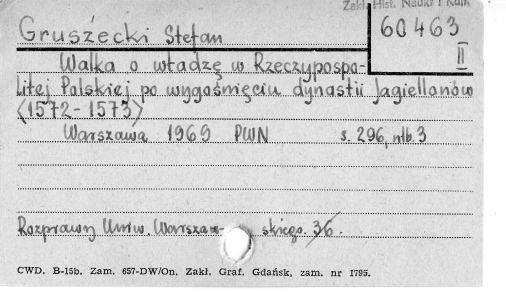 Zakł. Hist. Nauki i Tech
60463
II
Gruszecki Stefan
Walka o władzę w Rzeczypospo-
litej Polskiej po wygaśnięciu dynastii Jagiellonów
(1572-1573)
Warszawa 1969 PWN s. 296, nlb. 3
Rozprawy Uniw. Warszaw- skiego. 36.
CWD. B-15b. Zam. 657-DW/On. Zakł. Graf. Gdańsk, zam. nr 1795.